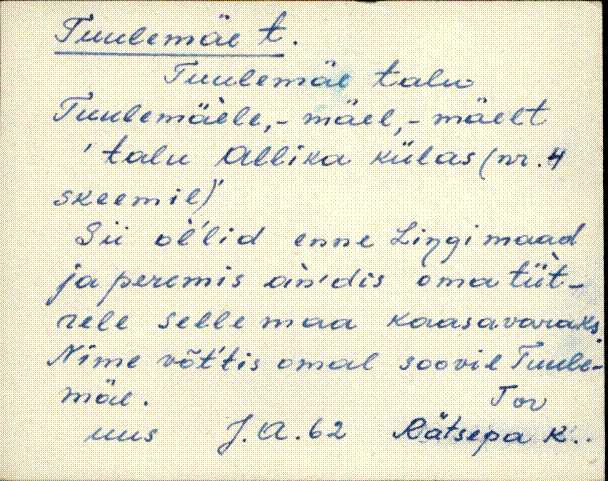 Tuulemäe t.
Tuulemäe talu
Tuulemäèle, - mäel, - mäelt
'talu Allika külas (nr. 4
skeemil)'
Sii ol'lid enne Liŋgi maad
ja peremis àn'dis oma tüt-
rele selle maa kaasavaraks.
Nime võt'tis omal soovil Tuule-
mäe.
Tor
uus J. A. 62 Rätsepa K..